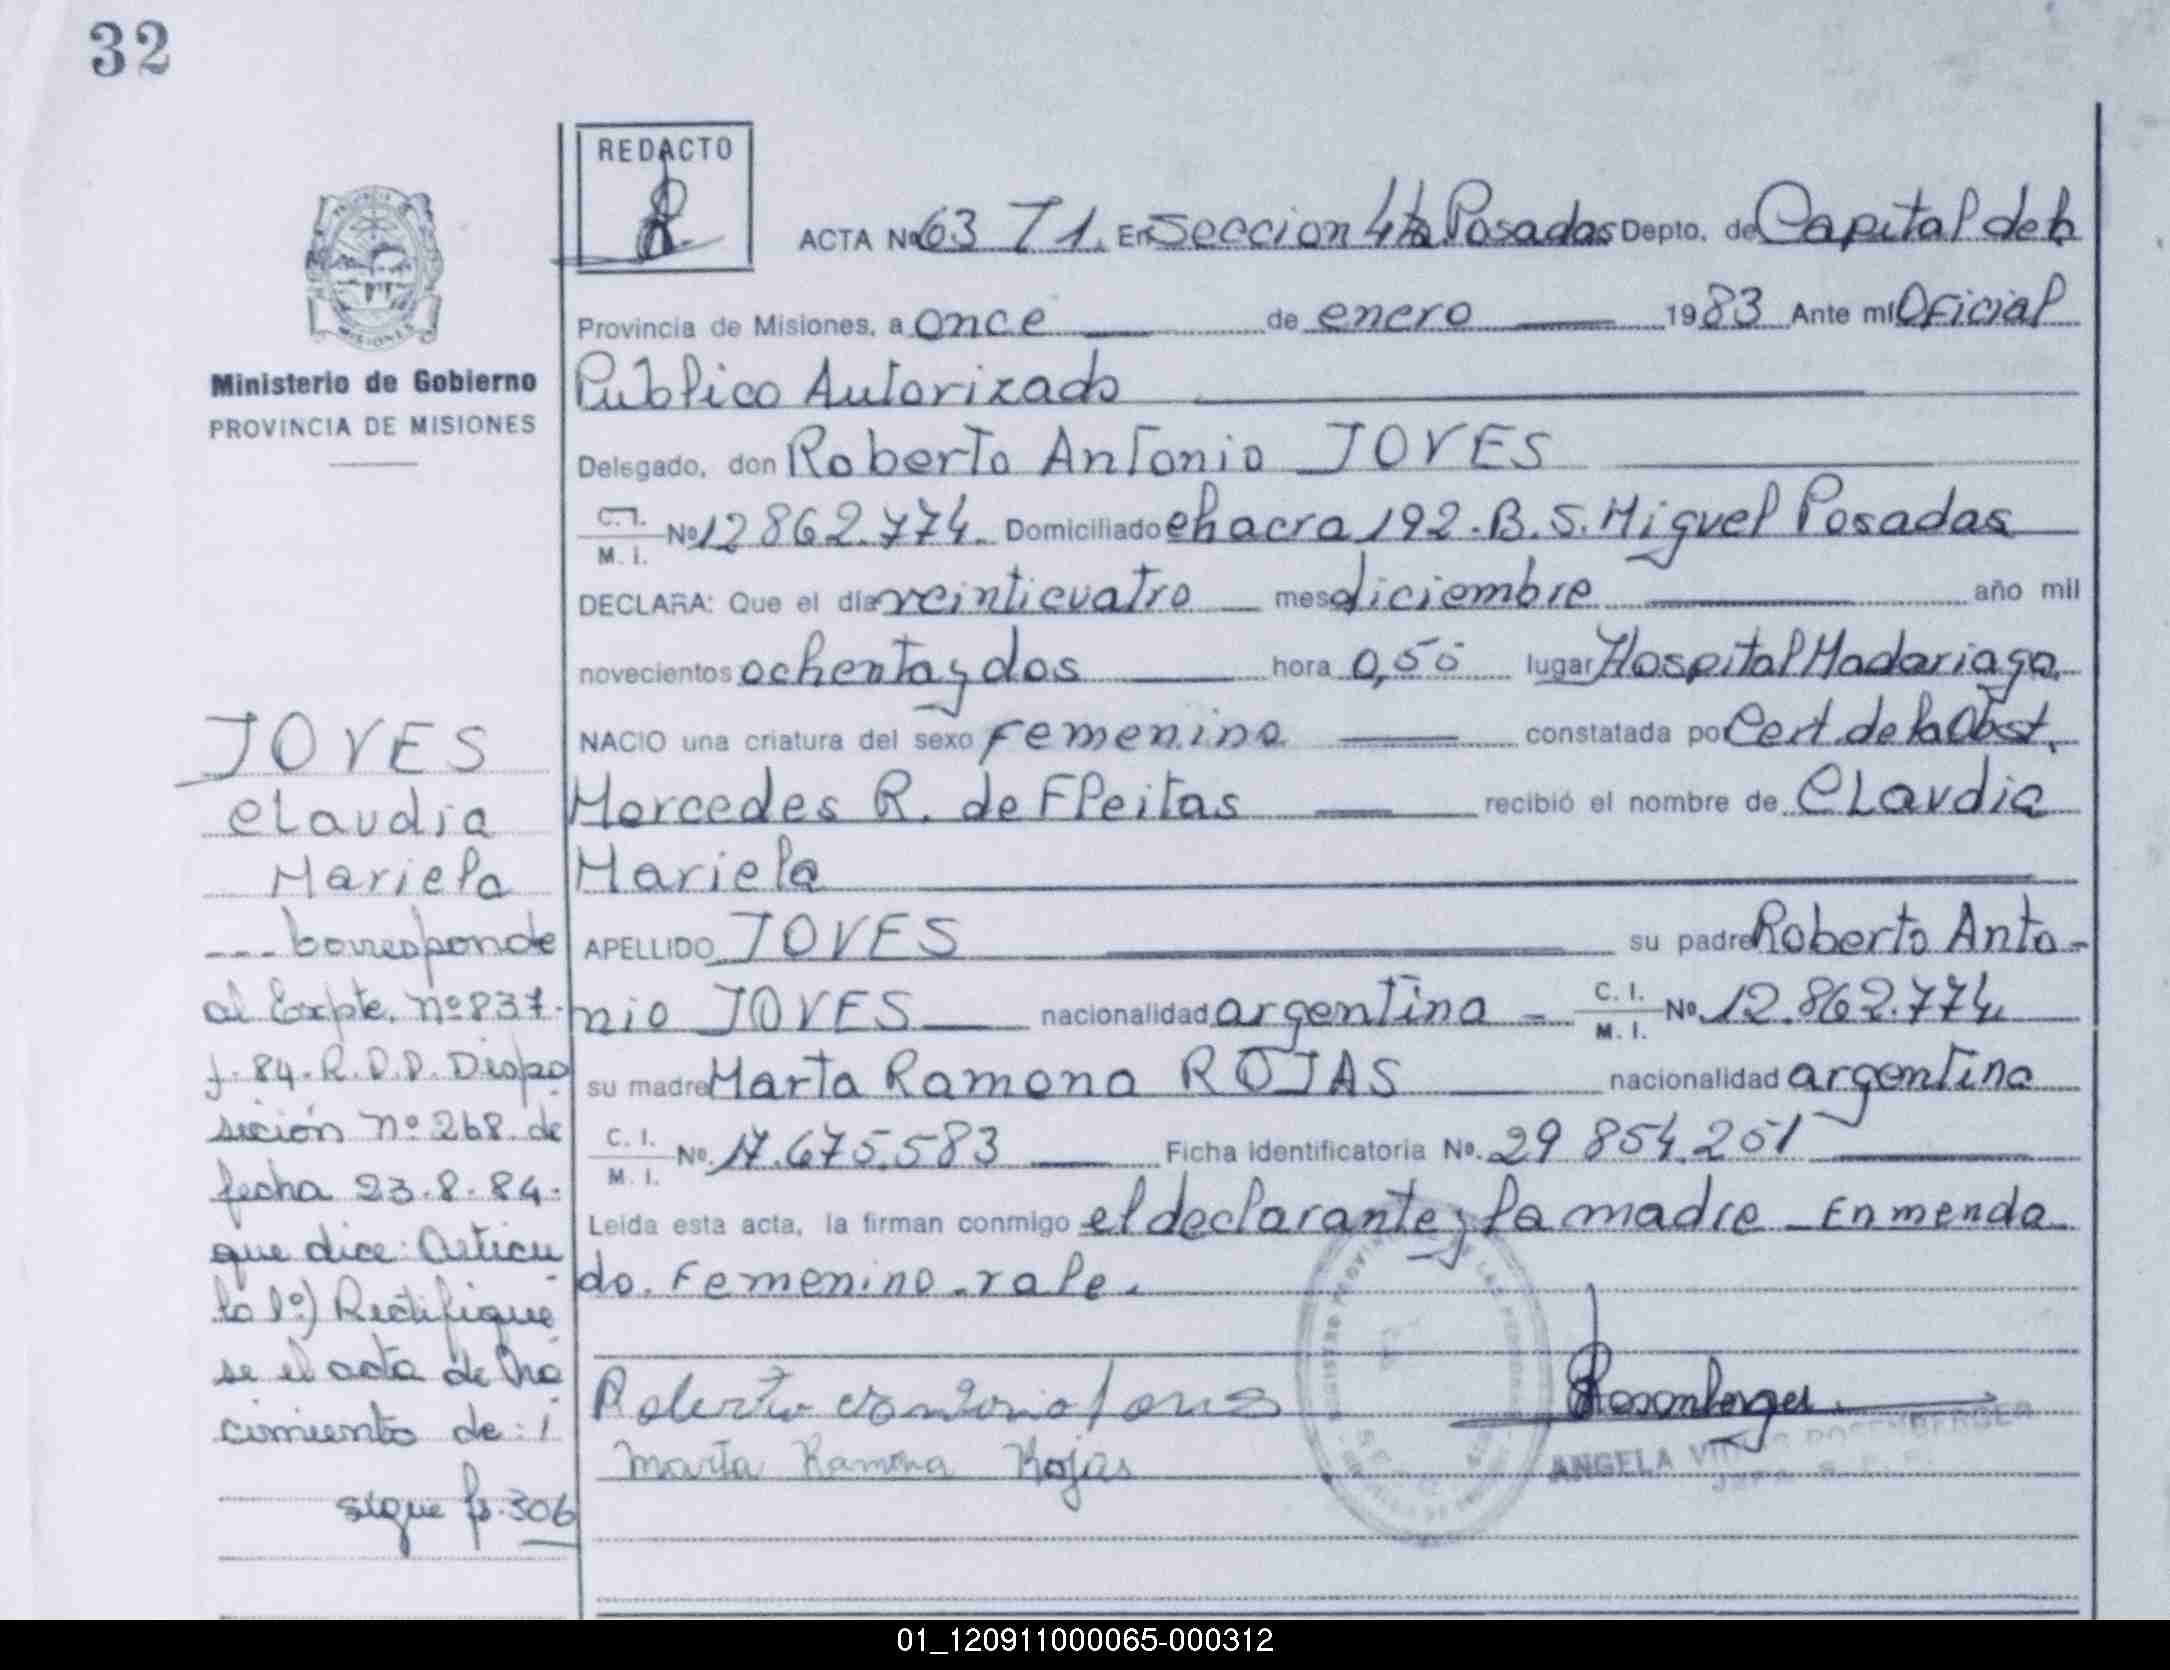 32
REDACTO
ACTA Nº 63 T 1. En Seccion 4ta Posadas Depto. de Capital de la
Provincia de Misiones, a once de enero 1983 Ante mí Oficial
Publico Autorizado
Delegado, don Roberto Antonio JOVES
C.I. M.I. Nº 12862.774. Domiciliado chacra 192. B. S. Miguel Posadas
DECLARA: Que el día veinticuatro mes diciembre año mil
novecientos ochenta y dos hora 0,50 lugar Hospital Madariaga.
NACIO una criatura del sexo Femenino constatada po Cert. de la Obst.
Mercedes R. de Fleitas recibió el nombre de Claudia
Mariela
APELLIDO JOVES su padre Roberto Anto-
nio JOVES nacionalidad argentina - C.I. M.I. Nº 12.862.774.
su madre Marta Ramona ROJAS nacionalidad argentina
C.I. M.I. Nº. 17.675.583 Ficha identificatoria Nº. 29 854.251
Leida esta acta, la firman conmigo el declarante y la madre - Enmenda
do. Femenino. vale.
Roberto Antonio Joves
Marta Ramona Rojas
Rosemberger
ANGELA ROSEMBERGER
Ministerio de Gobierno
PROVINCIA DE MISIONES
JOVES
Claudia
Mariela
--- Corresponde
al Expte. nº 837.
J. 84. R.P.P. Dispo
sición nº 268. de
fecha 23.8.84.
que dice: Articu
lo 1º) Rectifique
se el acta de Na
cimiento de: i
sigue fs. 306
01_120911000065-000312